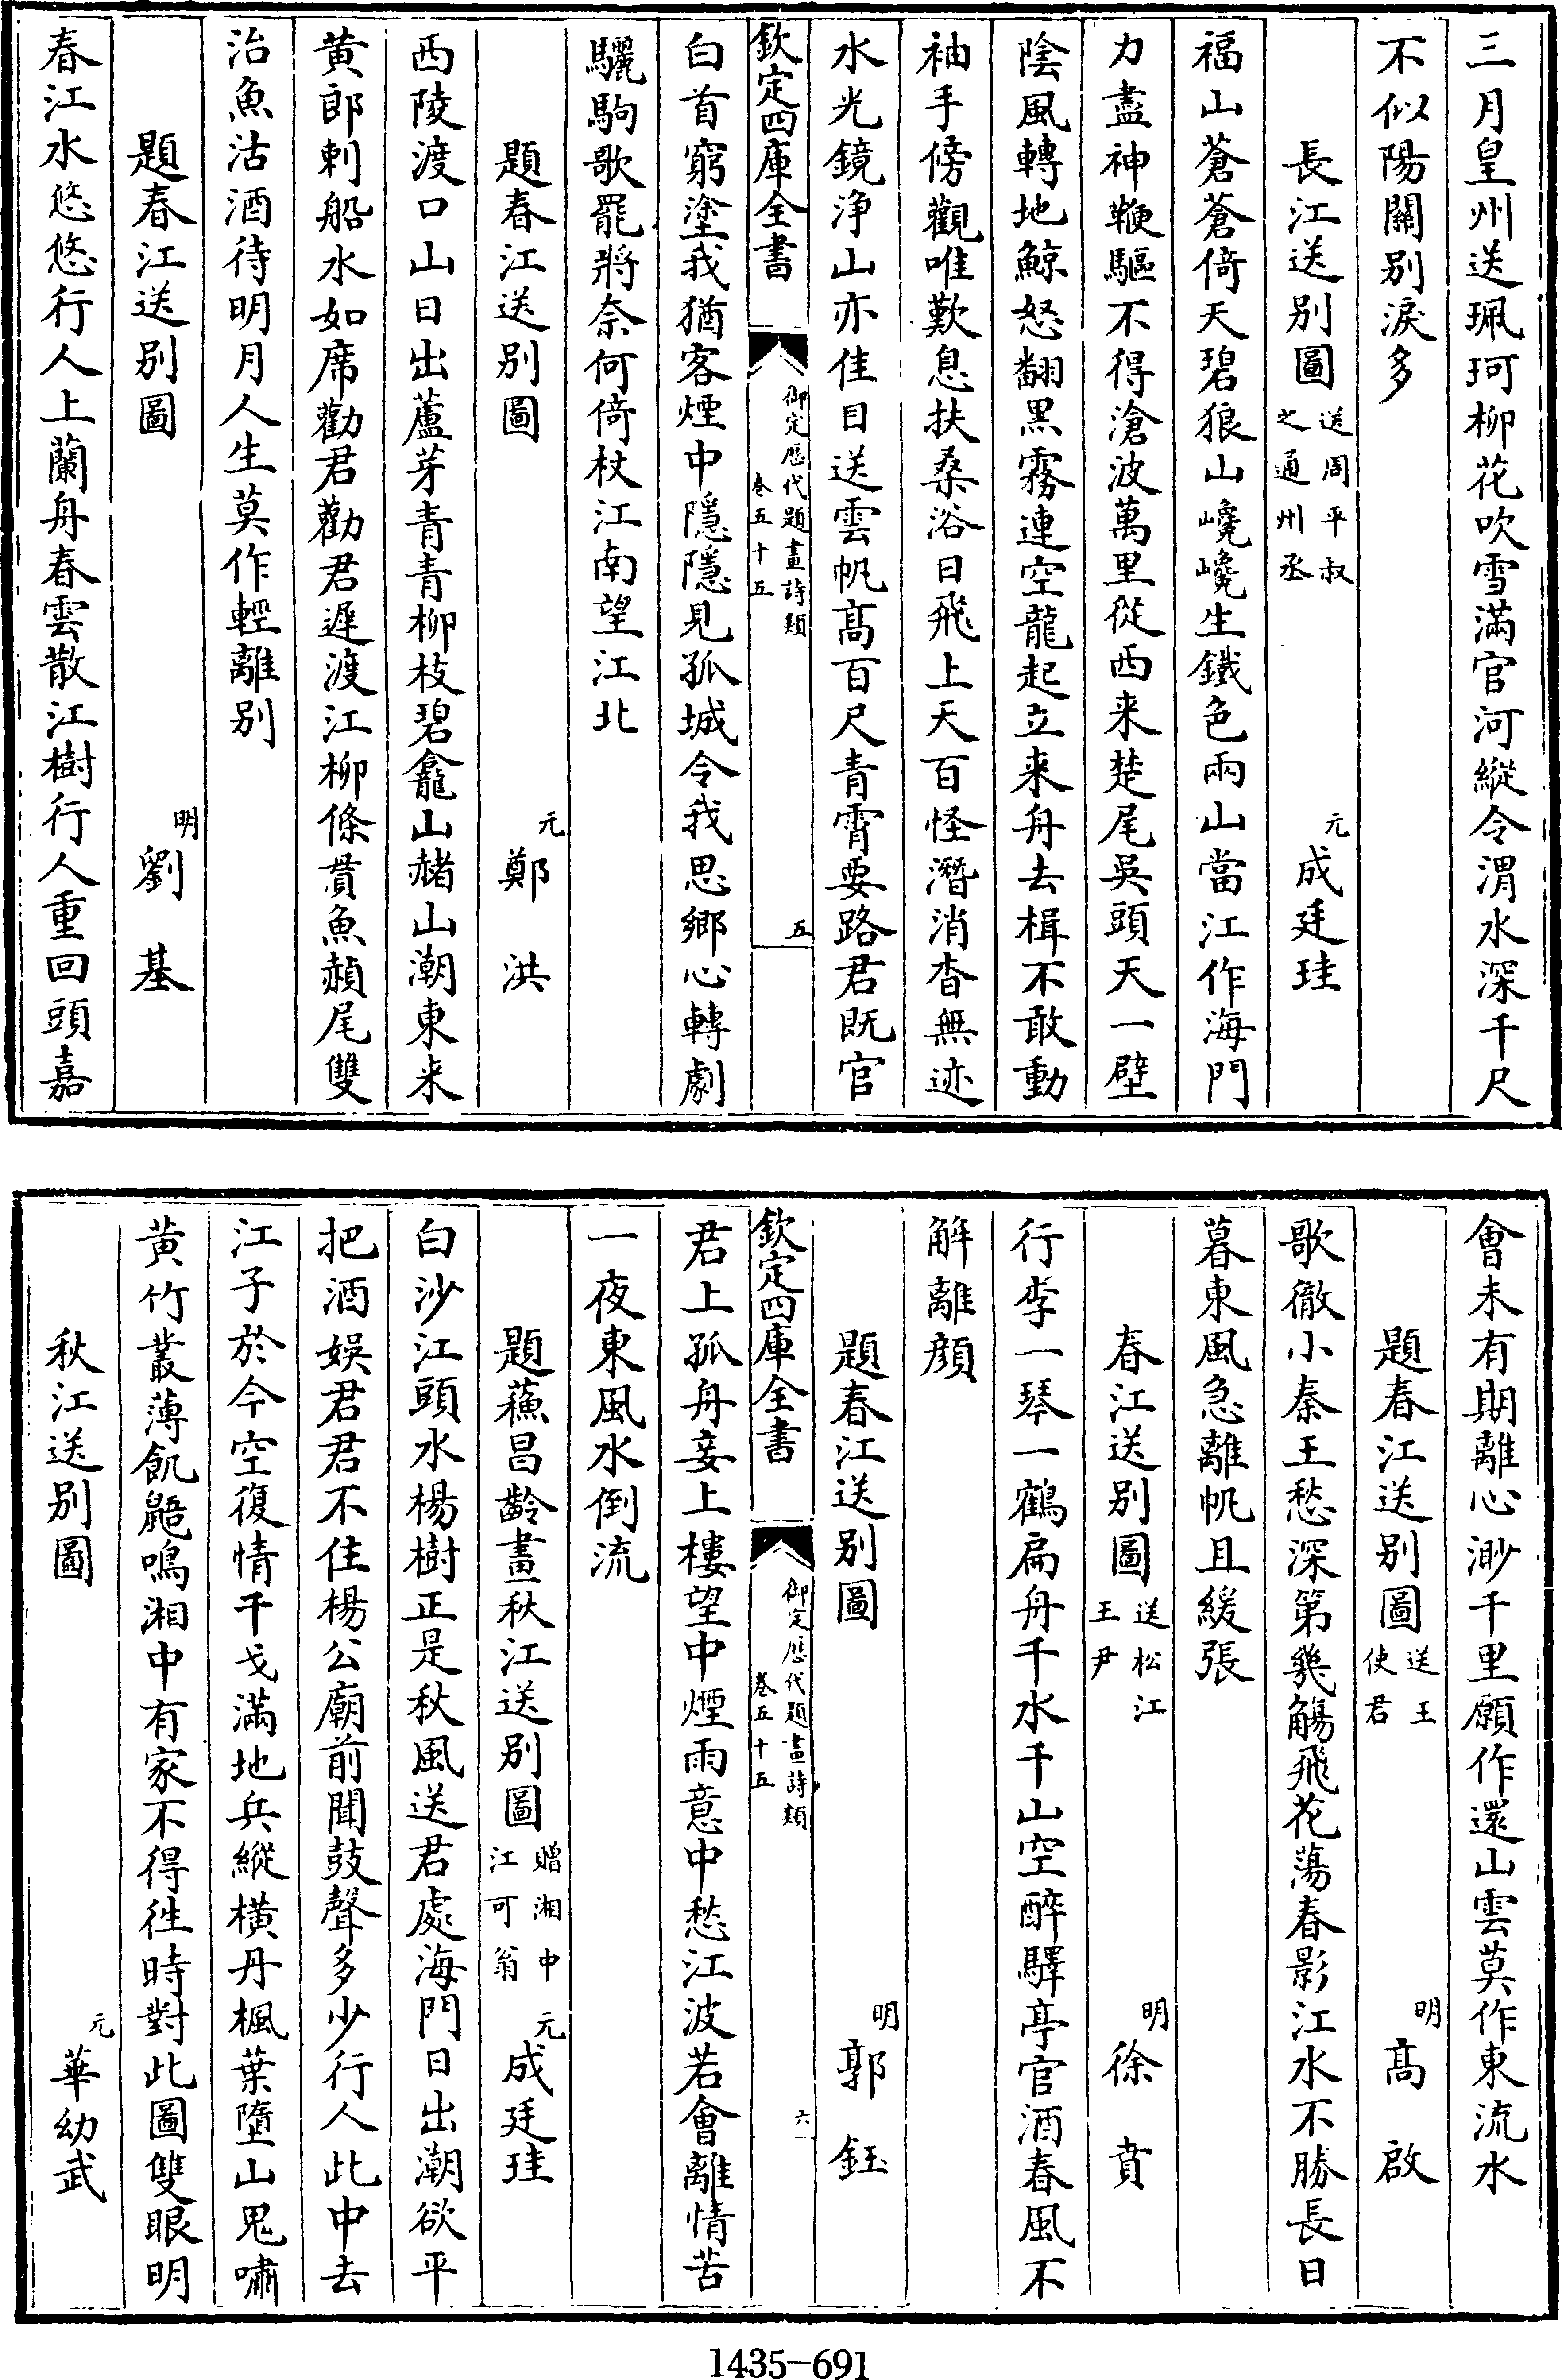 三月皇州送珮珂柳花吹雪滿官河縱令渭水深千尺
不似陽關别淚多
長江送别圖送周平叔之通州丞 元成廷珪
福山蒼蒼倚天碧狼山巉巉生鐵色兩山當江作海門
力盡神鞭驅不得滄波萬里從西來楚尾吳頭天一壁
陰風轉地鯨怒翻黑霧連空龍起立来舟去楫不敢動
袖手傍觀唯歎息扶桑浴日飛上天百怪潛消杳無迹
水光鏡浄山亦佳目送雲帆髙百尺青霄要路君既官
欽定四庫全書 御定歴代題畫詩類卷五十五 五
白首窮塗我猶客煙中隱隱見孤城令我思鄉心轉劇
驪駒歌罷將奈何倚杖江南望江北
題春江送别圖 元鄭洪
西陵渡口山日出蘆芽青青柳枝碧龕山赭山潮東来
黄郎刺船水如席勸君勸君遲渡江柳條貫魚赬尾雙
治魚沽酒待明月人生莫作輕離别
題春江送别圖 明劉基
春江水悠悠行人上蘭舟春雲散江樹行人重回頭嘉
會未有期離心渺千里願作還山雲莫作東流水
題春江送别圖送王使君 明髙啟
歌徹小秦王愁深第幾觴飛花蕩春影江水不勝長日
暮東風急離帆且緩張
春江送别圖送松江王尹 明徐賁
行李一琴一鶴扁舟千水千山空醉驛亭官酒春風不
解離顔
題春江送别圖 明郭鈺
欽定四庫全書 御定歴代題畫詩類卷五十五 六
君上孤舟妾上樓望中煙雨意中愁江波若會離情苦
一夜東風水倒流
題蘓昌齡畫秋江送别圖贈湘中江可翁 元成廷珪
白沙江頭水楊樹正是秋風送君處海門日出潮欲平
把酒娛君君不住楊公廟前聞鼓聲多少行人此中去
江子於今空復情干戈滿地兵縱横丹楓葉墮山鬼嘯
黄竹叢薄飢鼯鳴湘中有家不得徃時對此圖雙眼明
秋江送别圖 元華幼武
1435-691